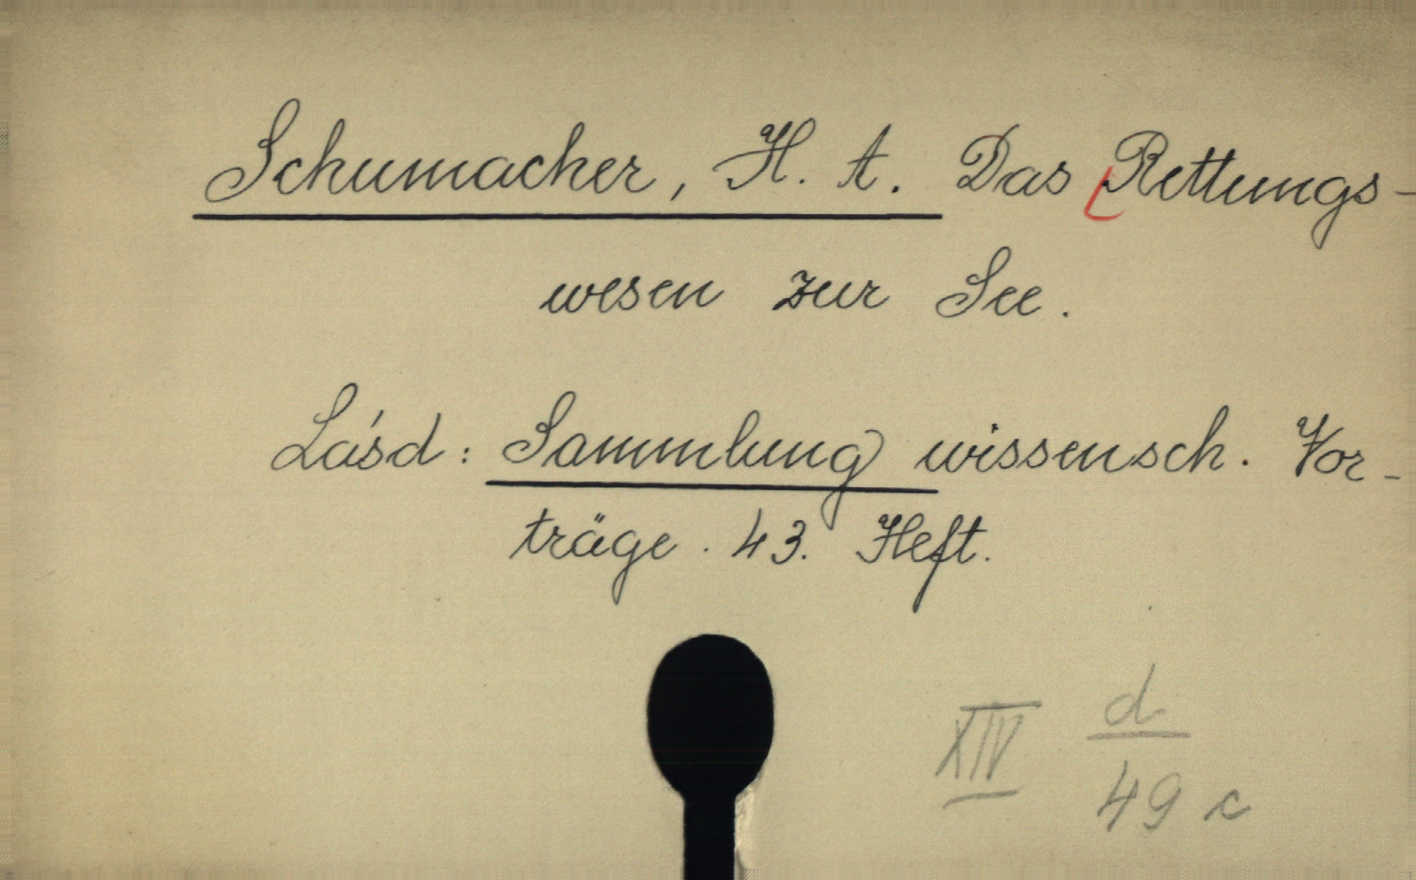 Schumacher, H. A. Das Rettungs-
wesen zur See.
Lásd: Sammlung wissensch. Vor-
träge. 43. Heft.
XIV d
49 c